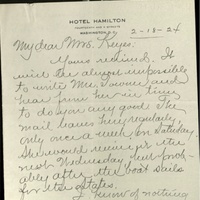 HOTEL HAMILTON
WASHINGTON, D.C.
2-18-24
My dear Mrs. Keyes:
Yours received. It
will be almost impossible
to write Mrs. and
hear from her in time
to do you any good. The
mail leaves him regularly
only once a week, on Saturday.
She would receive it the
next Wednesday and prob-
ably after the boat sails
for the States.
I know of nothing